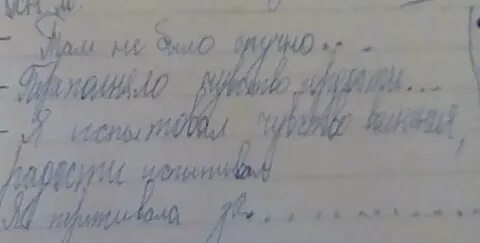 - Там не было скучно...
- Переполняло чувство гордости...
- Я испытовал чувство волнения,
радости испытывал
Я переживала за...........